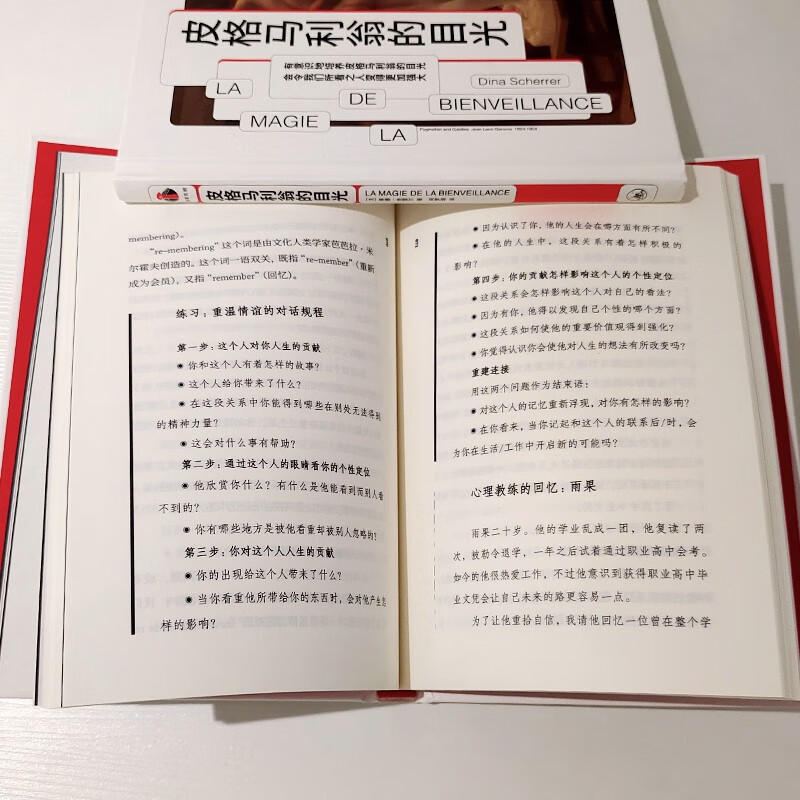 皮格马利翁的目光
有意识地培养皮格马利翁的目光
会令我们所看之人变得更加强大
Dina Scherrer
LA
DE
BIENVEILLANCE
MAGIE
LA
皮格马利翁的目光
LA MAGIE DE LA BIENVEILLANCE
membering)。
“re-membering”这个词是由文化人类学家芭芭拉·米
尔霍夫创造的。这个词一语双关，既指“re-member”（重新
成为会员），又指“remember”（回忆）。
练习：重温情谊的对话规程
第一步：这个人对你人生的贡献
◉ 你和这个人有着怎样的故事？
◉ 这个人给你带来了什么？
◉ 在这段关系中你能得到哪些在别处无法得到
的精神力量？
◉ 这会对什么事有帮助？
第二步：通过这个人的眼睛看你的个性定位
◉ 他欣赏你什么？有什么是他能看到而别人看
不到的？
◉ 你有哪些地方是被他看重却被别人忽略的？
第三步：你对这个人人生的贡献
◉ 你的出现给这个人带来了什么？
◉ 当你看重他所带给你的东西时，会对他产生怎
样的影响？
◉ 因为认识了你，他的人生会在哪方面有所不同？
◉ 在他的人生中，这段关系有着怎样积极的
影响？
第四步：你的贡献怎样影响这个人的个性定位
◉ 这段关系会怎样影响这个人对自己的看法？
◉ 因为有你，他得以发现自己个性的哪个方面？
◉ 这段关系如何使他的重要价值观得到强化？
◉ 你觉得认识你会使他对人生的想法有所改变吗？
重建连接
用这两个问题作为结束语：
◉ 对这个人的记忆重新浮现，对你有怎样的影响？
◉ 在你看来，当你记起和这个人的联系后/时，会
为你在生活/工作中开启新的可能吗？
心理教练的回忆：雨果
雨果二十岁。他的学业乱成一团，他复读了两
次，被勒令退学，一年之后试着通过职业高中会考。
如今的他很热爱工作，不过他意识到获得职业高中毕
业文凭会让自己未来的路更容易一点。
为了让他重拾自信，我请他回忆一位曾在整个学